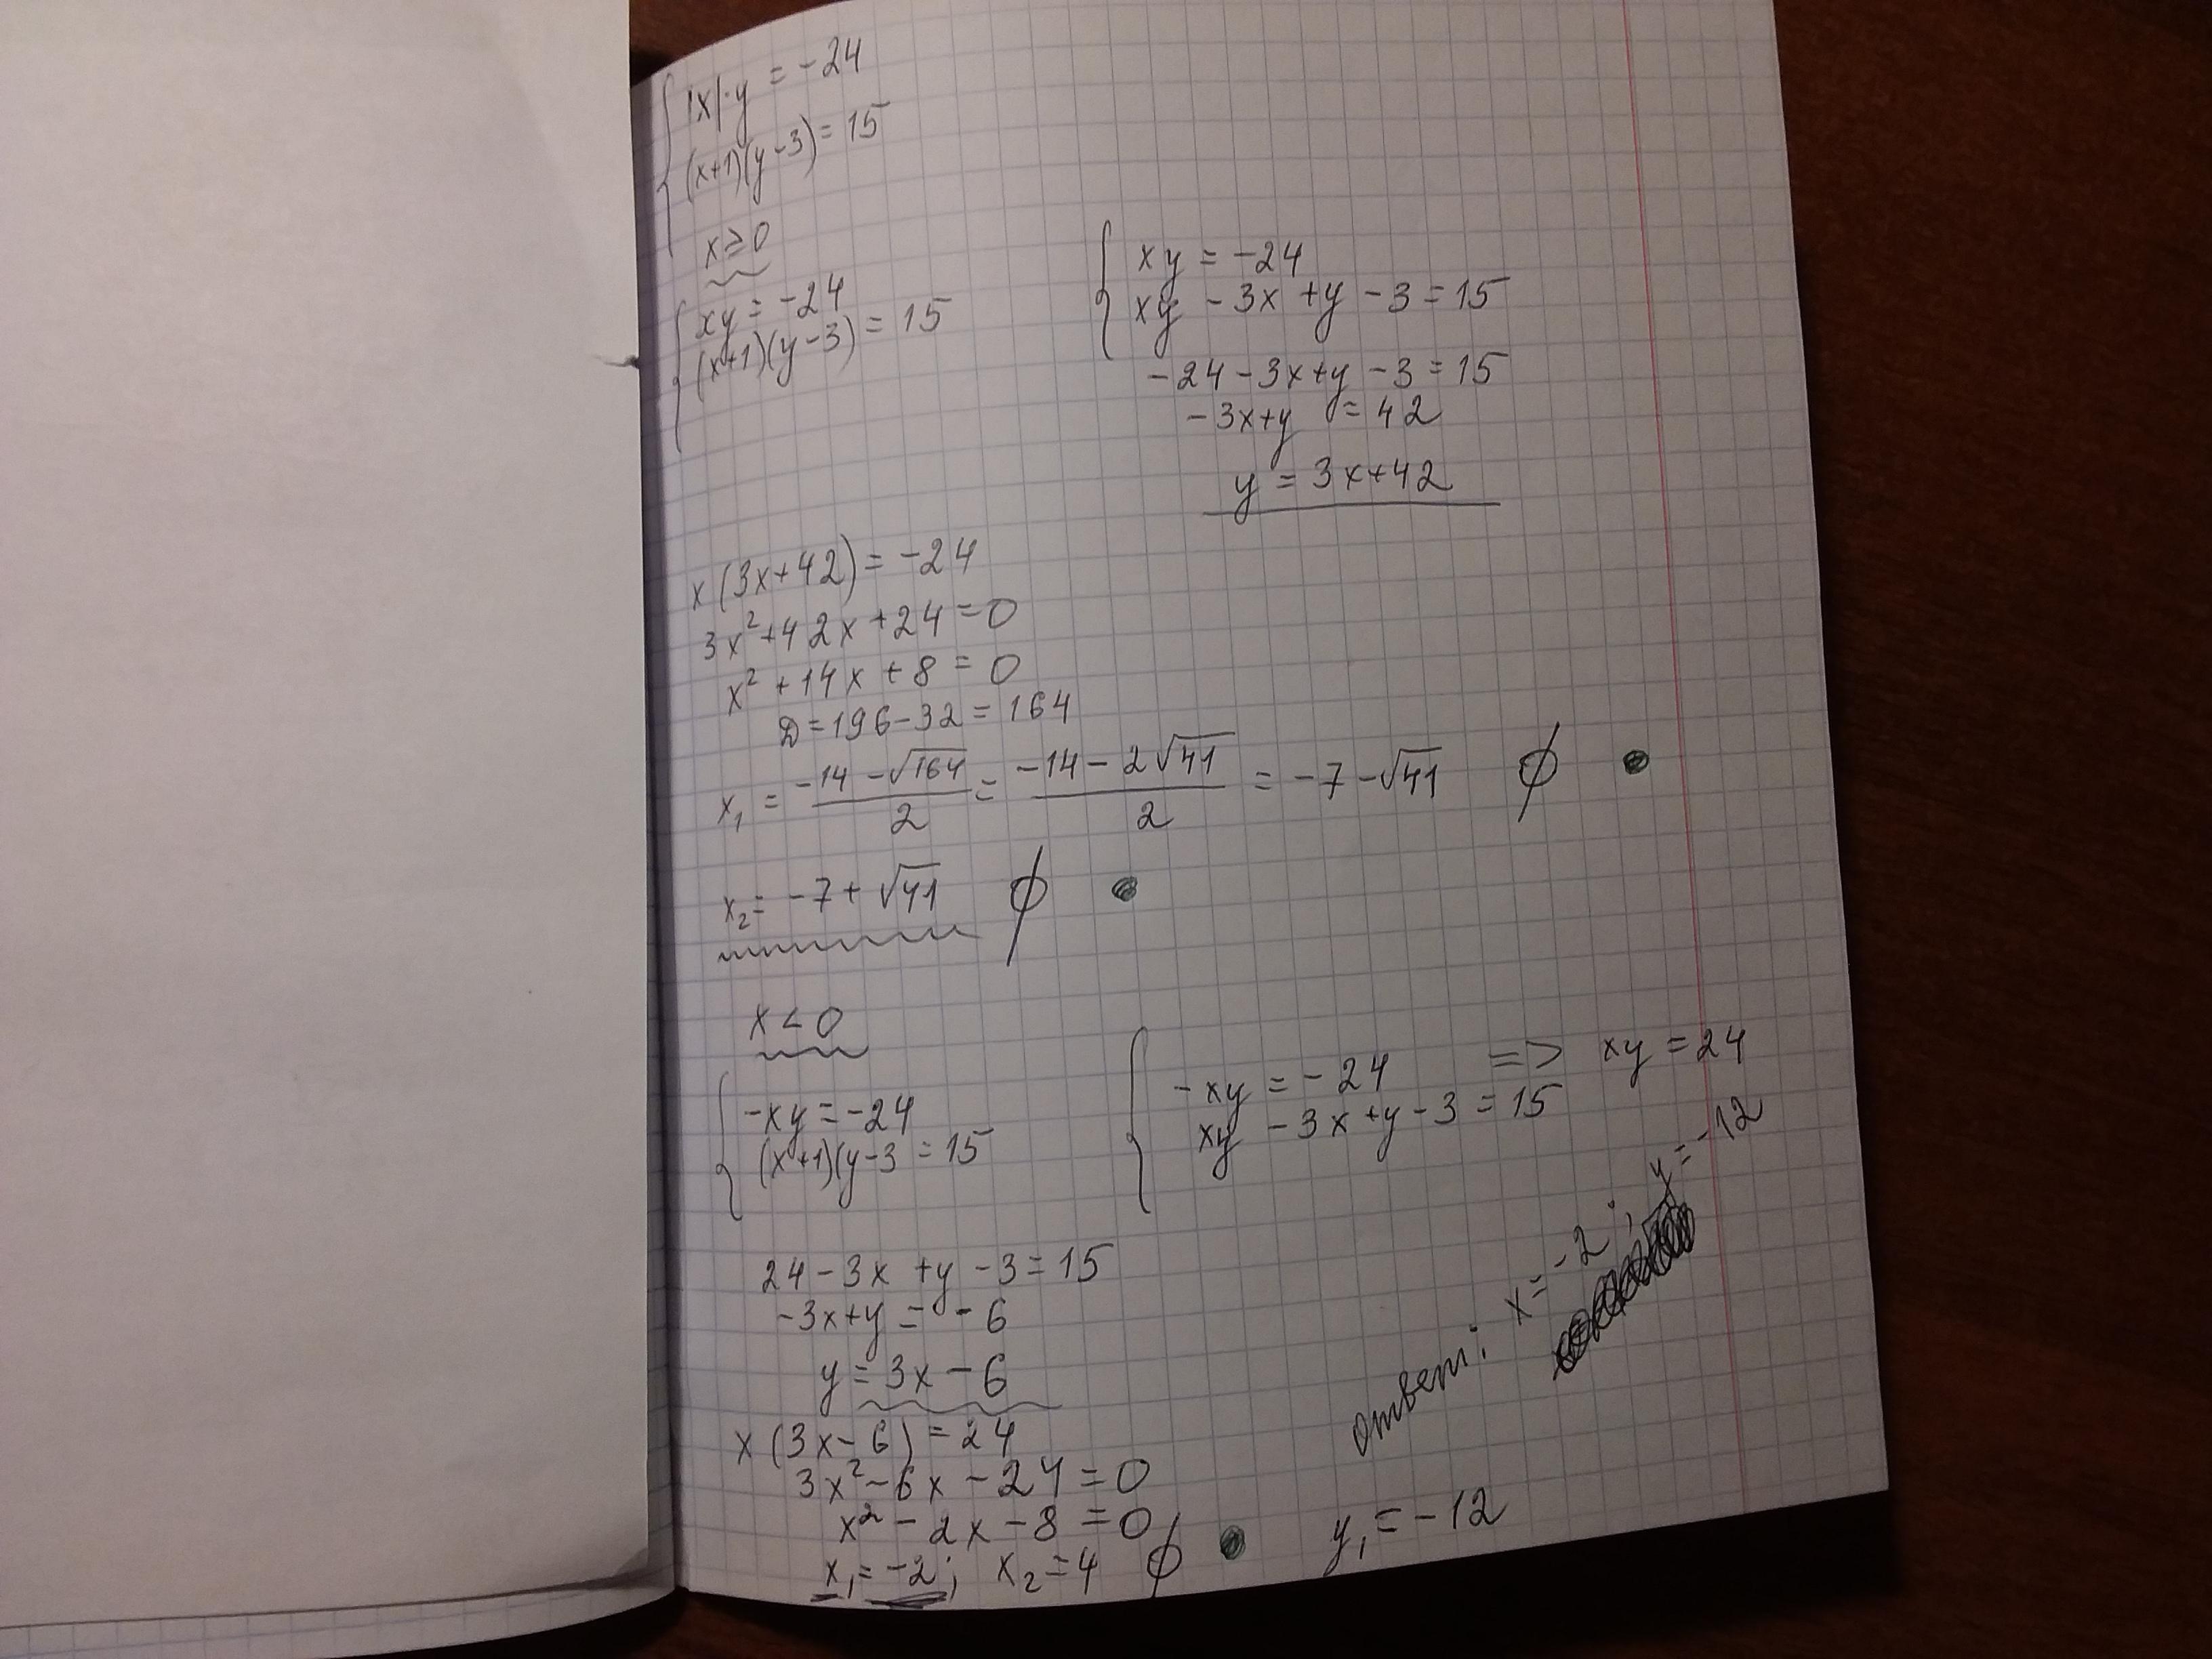 |x|·y = -24
(x+1)(y-3) = 15
x ≥ 0
xy = -24
(x+1)(y-3) = 15
xy = -24
xy - 3x + y - 3 = 15
-24 - 3x + y - 3 = 15
-3x + y = 42
y = 3x + 42
x(3x+42) = -24
3x² + 42x + 24 = 0
x² + 14x + 8 = 0
D = 196 - 32 = 164
x₁ = (-14 - √164)/2 = (-14 - 2√41)/2 = -7 - √41 ∅
x₂ = -7 + √41 ∅
x < 0
-xy = -24
(x+1)(y-3 = 15
-xy = -24 => xy = 24
xy - 3x + y - 3 = 15
24 - 3x + y - 3 = 15
-3x + y = -6
y = 3x - 6
x(3x - 6) = 24
3x² - 6x - 24 = 0
x² - 2x - 8 = 0
x₁ = -2; x₂ = 4 ∅
y₁ = -12
Ответ: x = -2; y = -12